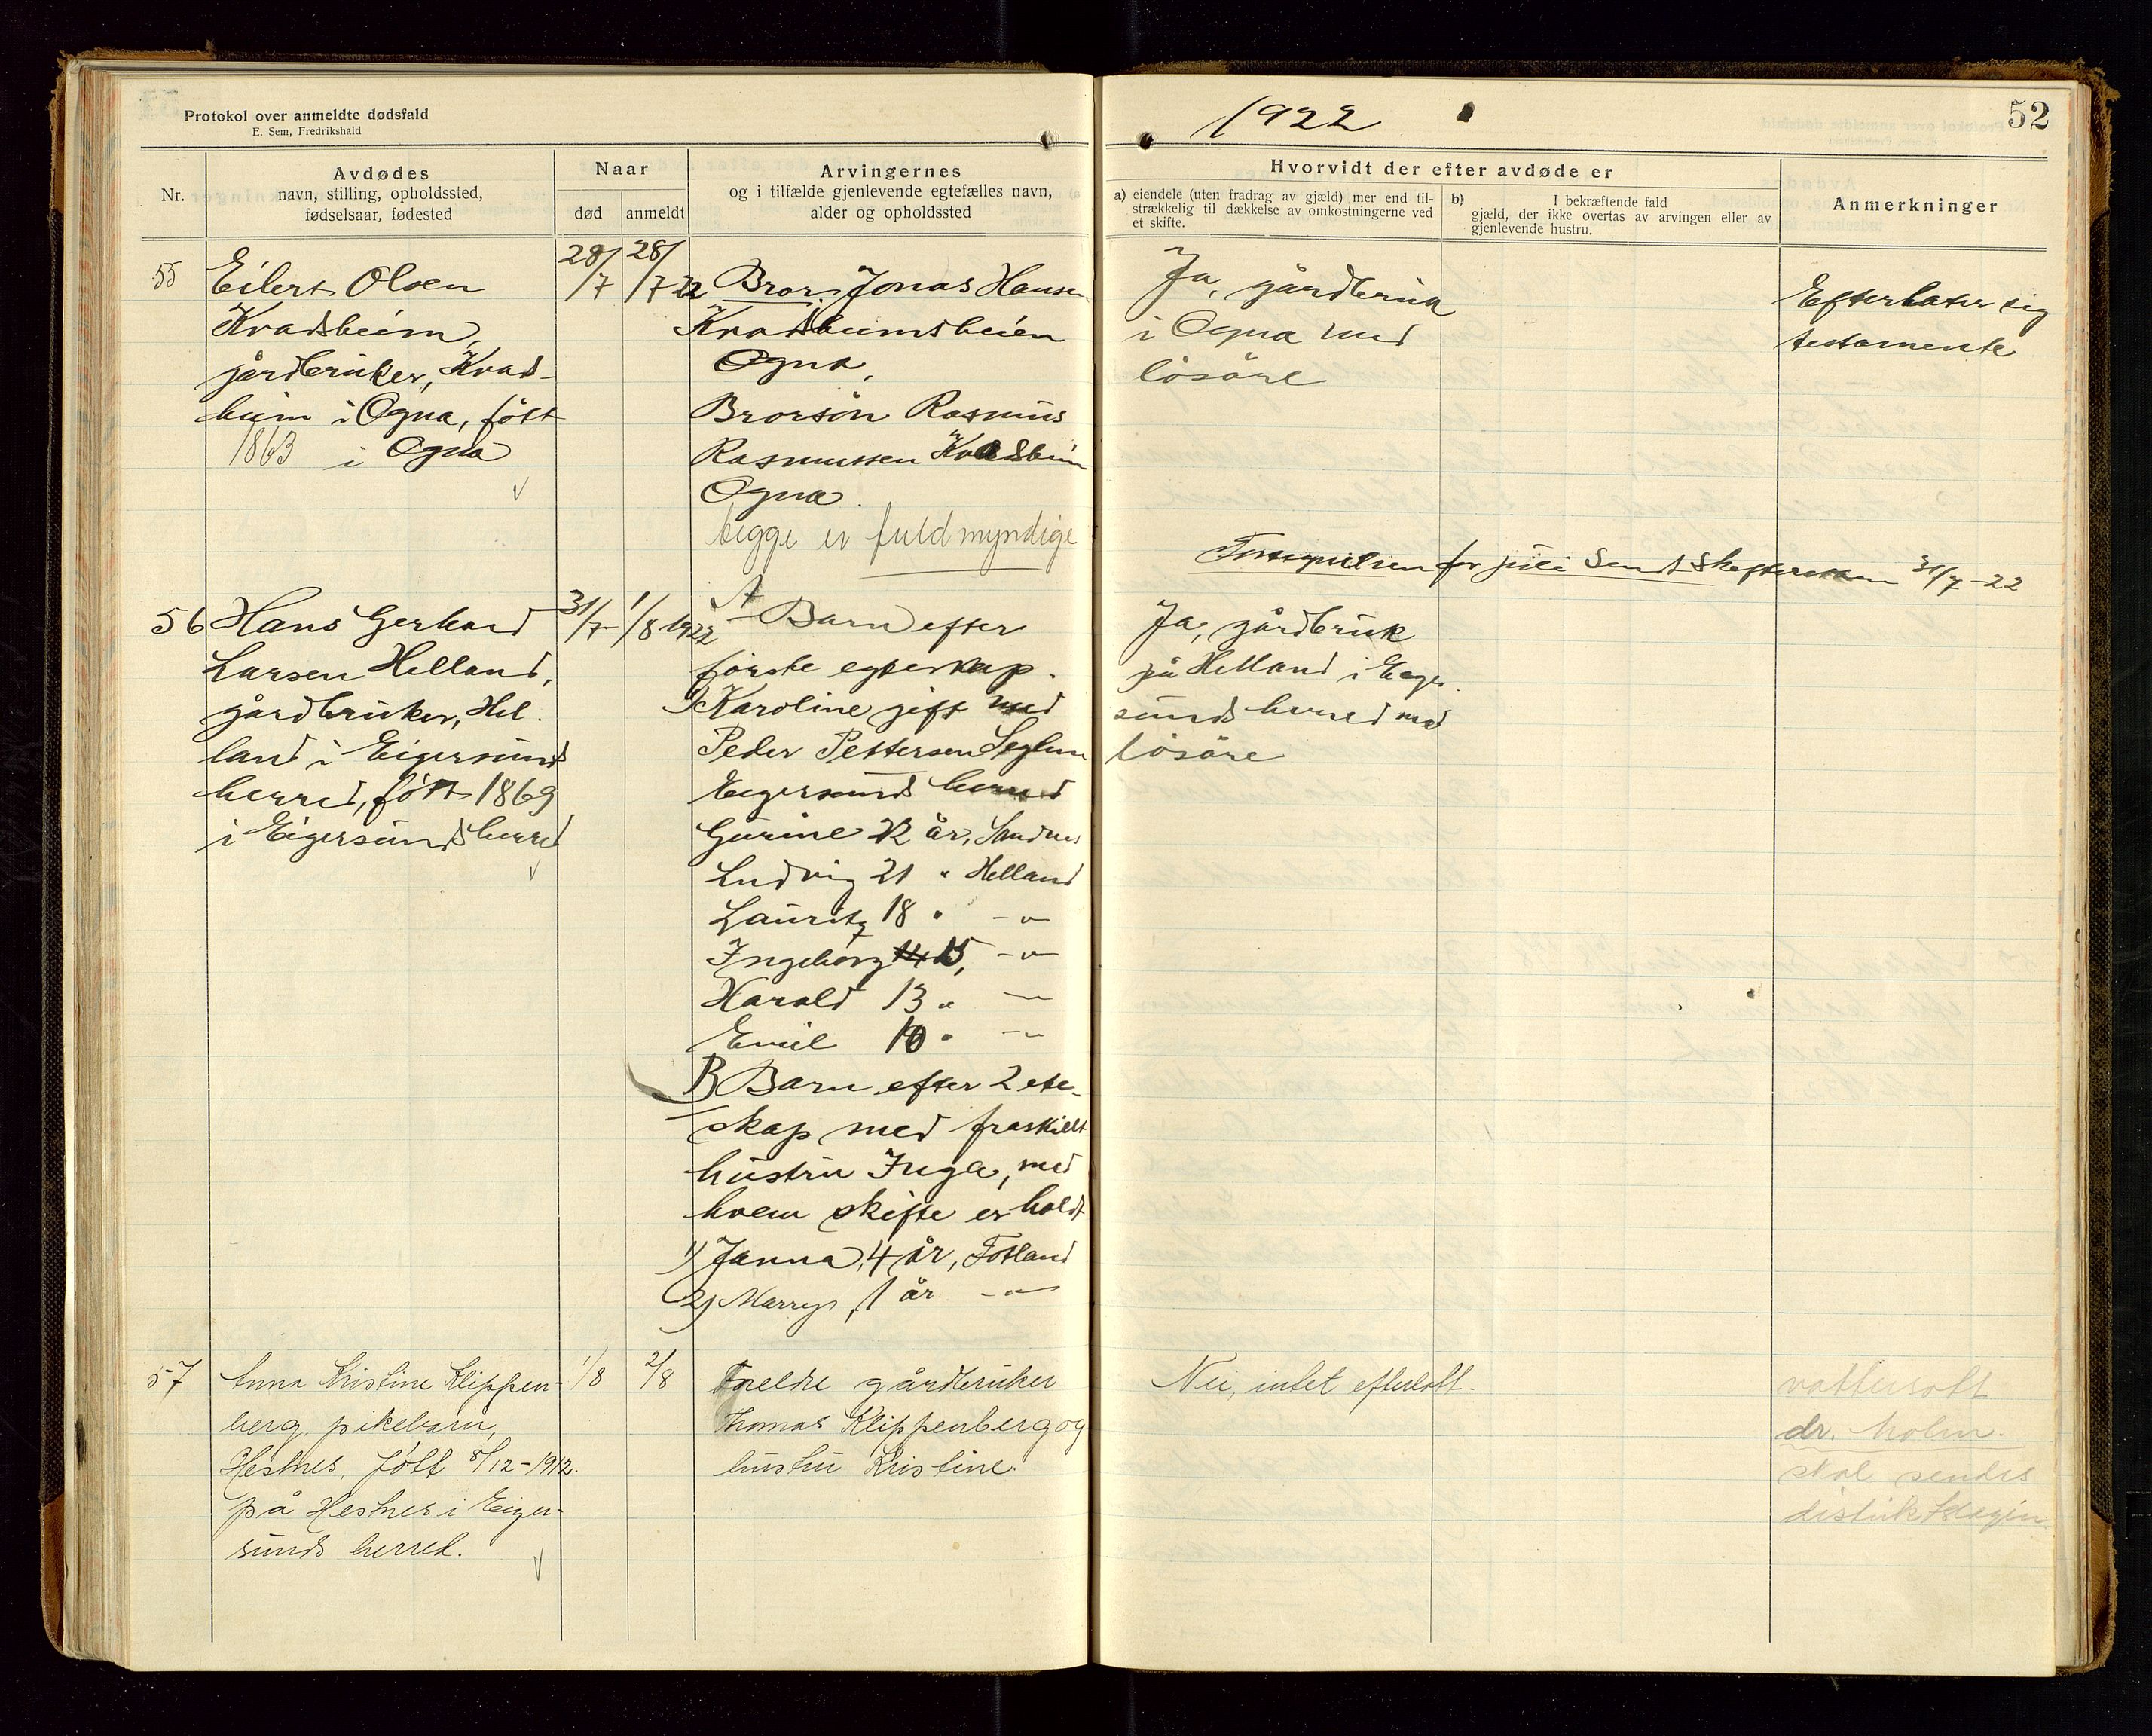 Protokol over anmeldte dødsfald
E. Sem, Fredrikshald
1922
52
Nr.
Avdødes
navn, stilling, opholdssted,
fødselsaar, fødested
Naar
død
anmeldt
Arvingernes
og i tilfælde gjenlevende egtefælles navn,
alder og opholdssted
Hvorvidt der efter avdøde er
a) eiendele (uten fradrag av gjæld) mer end til-
strækkelig til dækkelse av omkostningerne ved
et skifte.
b) I bekræftende fald
gjæld, der ikke overtas av arvingen eller av
gjenlevende hustru.
Anmerkninger
55
Eilert Olsen
Kvadsheim,
gårdbruker, Kvad-
heim i Ogna, født
1863 i Ogna
28/7
28/7 22
Bror Jonas Hansen
Kvadsheimsheien
Ogna,
Brorsøn Rasmus
Rasmussen Kvadsheim
Ogna.
begge er fuldmyndige
Ja, gårdbruk
i Ogna med
løsøre
Efterlater sig
testamente
for juli sendt 31/7-22
56
Hans Gerhard
Larsen Helland,
gårdbruker, Hel-
land i Eigersunds
herred, født 1869
i Eigersunds herred
31/7
1/8 1922
A Barn efter
første egteskap.
1) Karoline gift med
Peder Pettersen Seglem
Eigersunds herred
Gurine 22 år, Sandnes
Ludvig 21 " Helland
Lauritz 18 " -"-
Ingeborg 14 15, -"-
Harald 13 " -"-
Emil 10 " -"-
B Barn efter 2 ekte-
skap med fraskilt
hustru Inga, med
hvem skifte er holdt
1) Janna, 4 år, Fotland
2) Marry, 1 år -"-
Ja, gårdbruk
på Helland i Eiger-
sunds herred med
løsøre
57
Anna Kristine Klippen-
berg, pikebarn,
Hestnes, født 8/12-1912.
på Hestnes i Eiger-
sunds herred.
1/8
2/8
Foreldre gårdbruker
Thomas Klippenberg og
hustru Kristine.
Nei, intet efterlatt.
vattersott
dr. Holm.
skal sendes